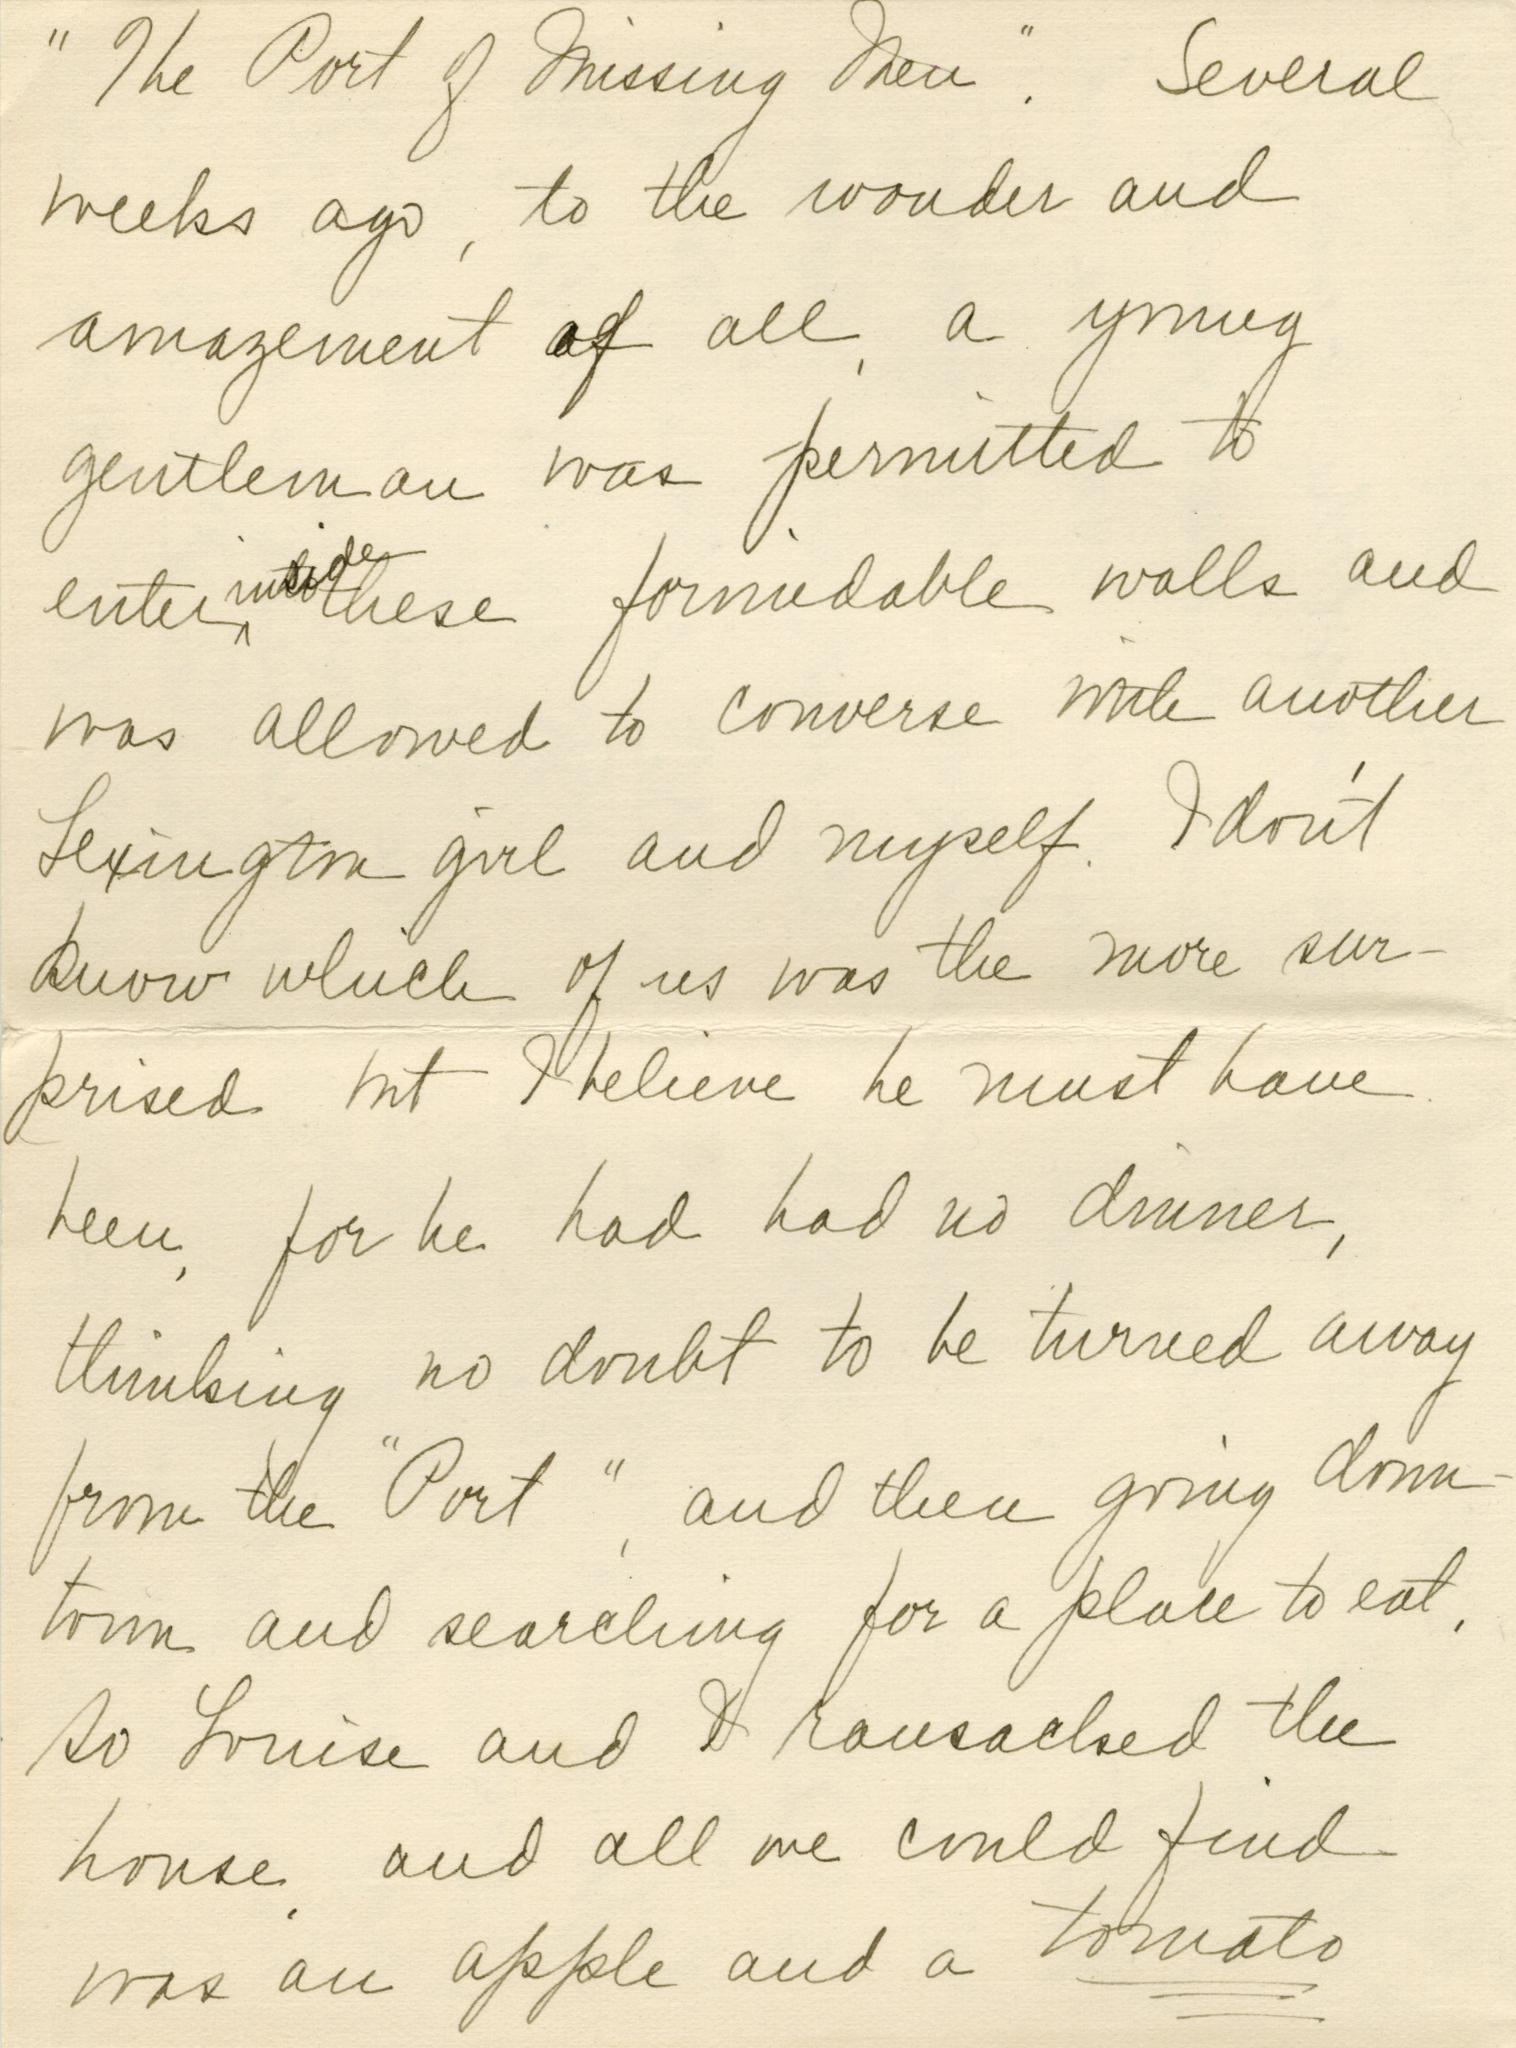 "The Port of Missing Men". Several
weeks ago, to the wonder and
amazement of all, a young
gentleman was permitted to
enter inside these formidable walls and
was allowed to converse with another
Lexington girl and myself. I don't
know which of us was the more sur-
prised but I believe he must have
been, for he had had no dinner,
thinking no doubt to be turned away
from the "Port", and then going down-
town and searching for a place to eat.
So Louise and I ransacked the
house, and all we could find
was an apple and a tomato